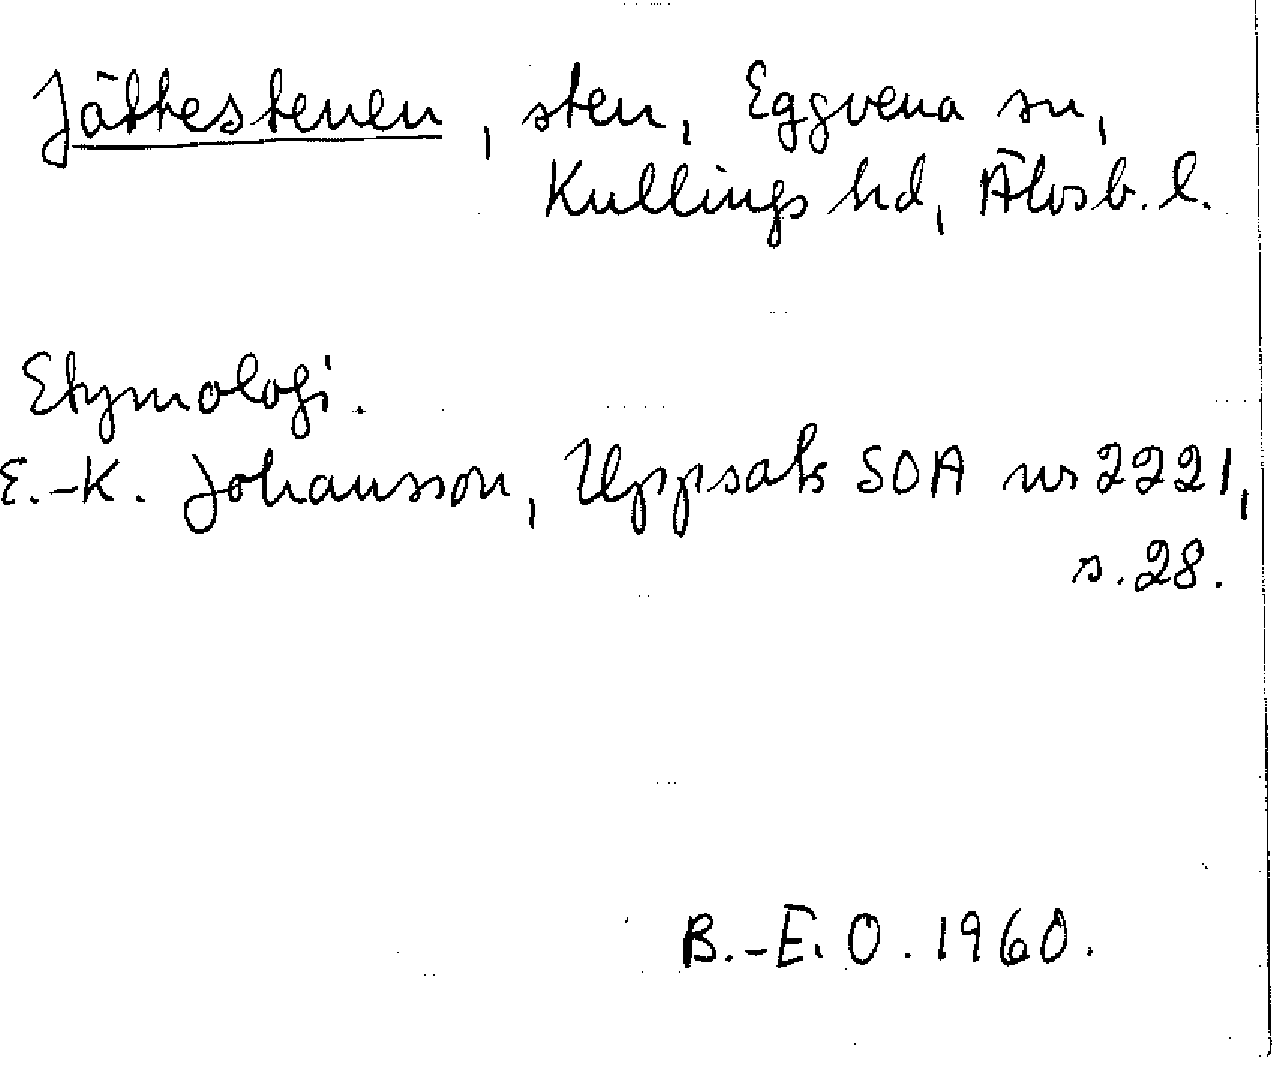 Jättestenen, sten, Eggvena sn,
Kullings hd, Älvsb. l.
Etymologi.
E.-K. Johansson, Uppsats SOA nr 2221,
s. 28.
B.-E. O. 1960.